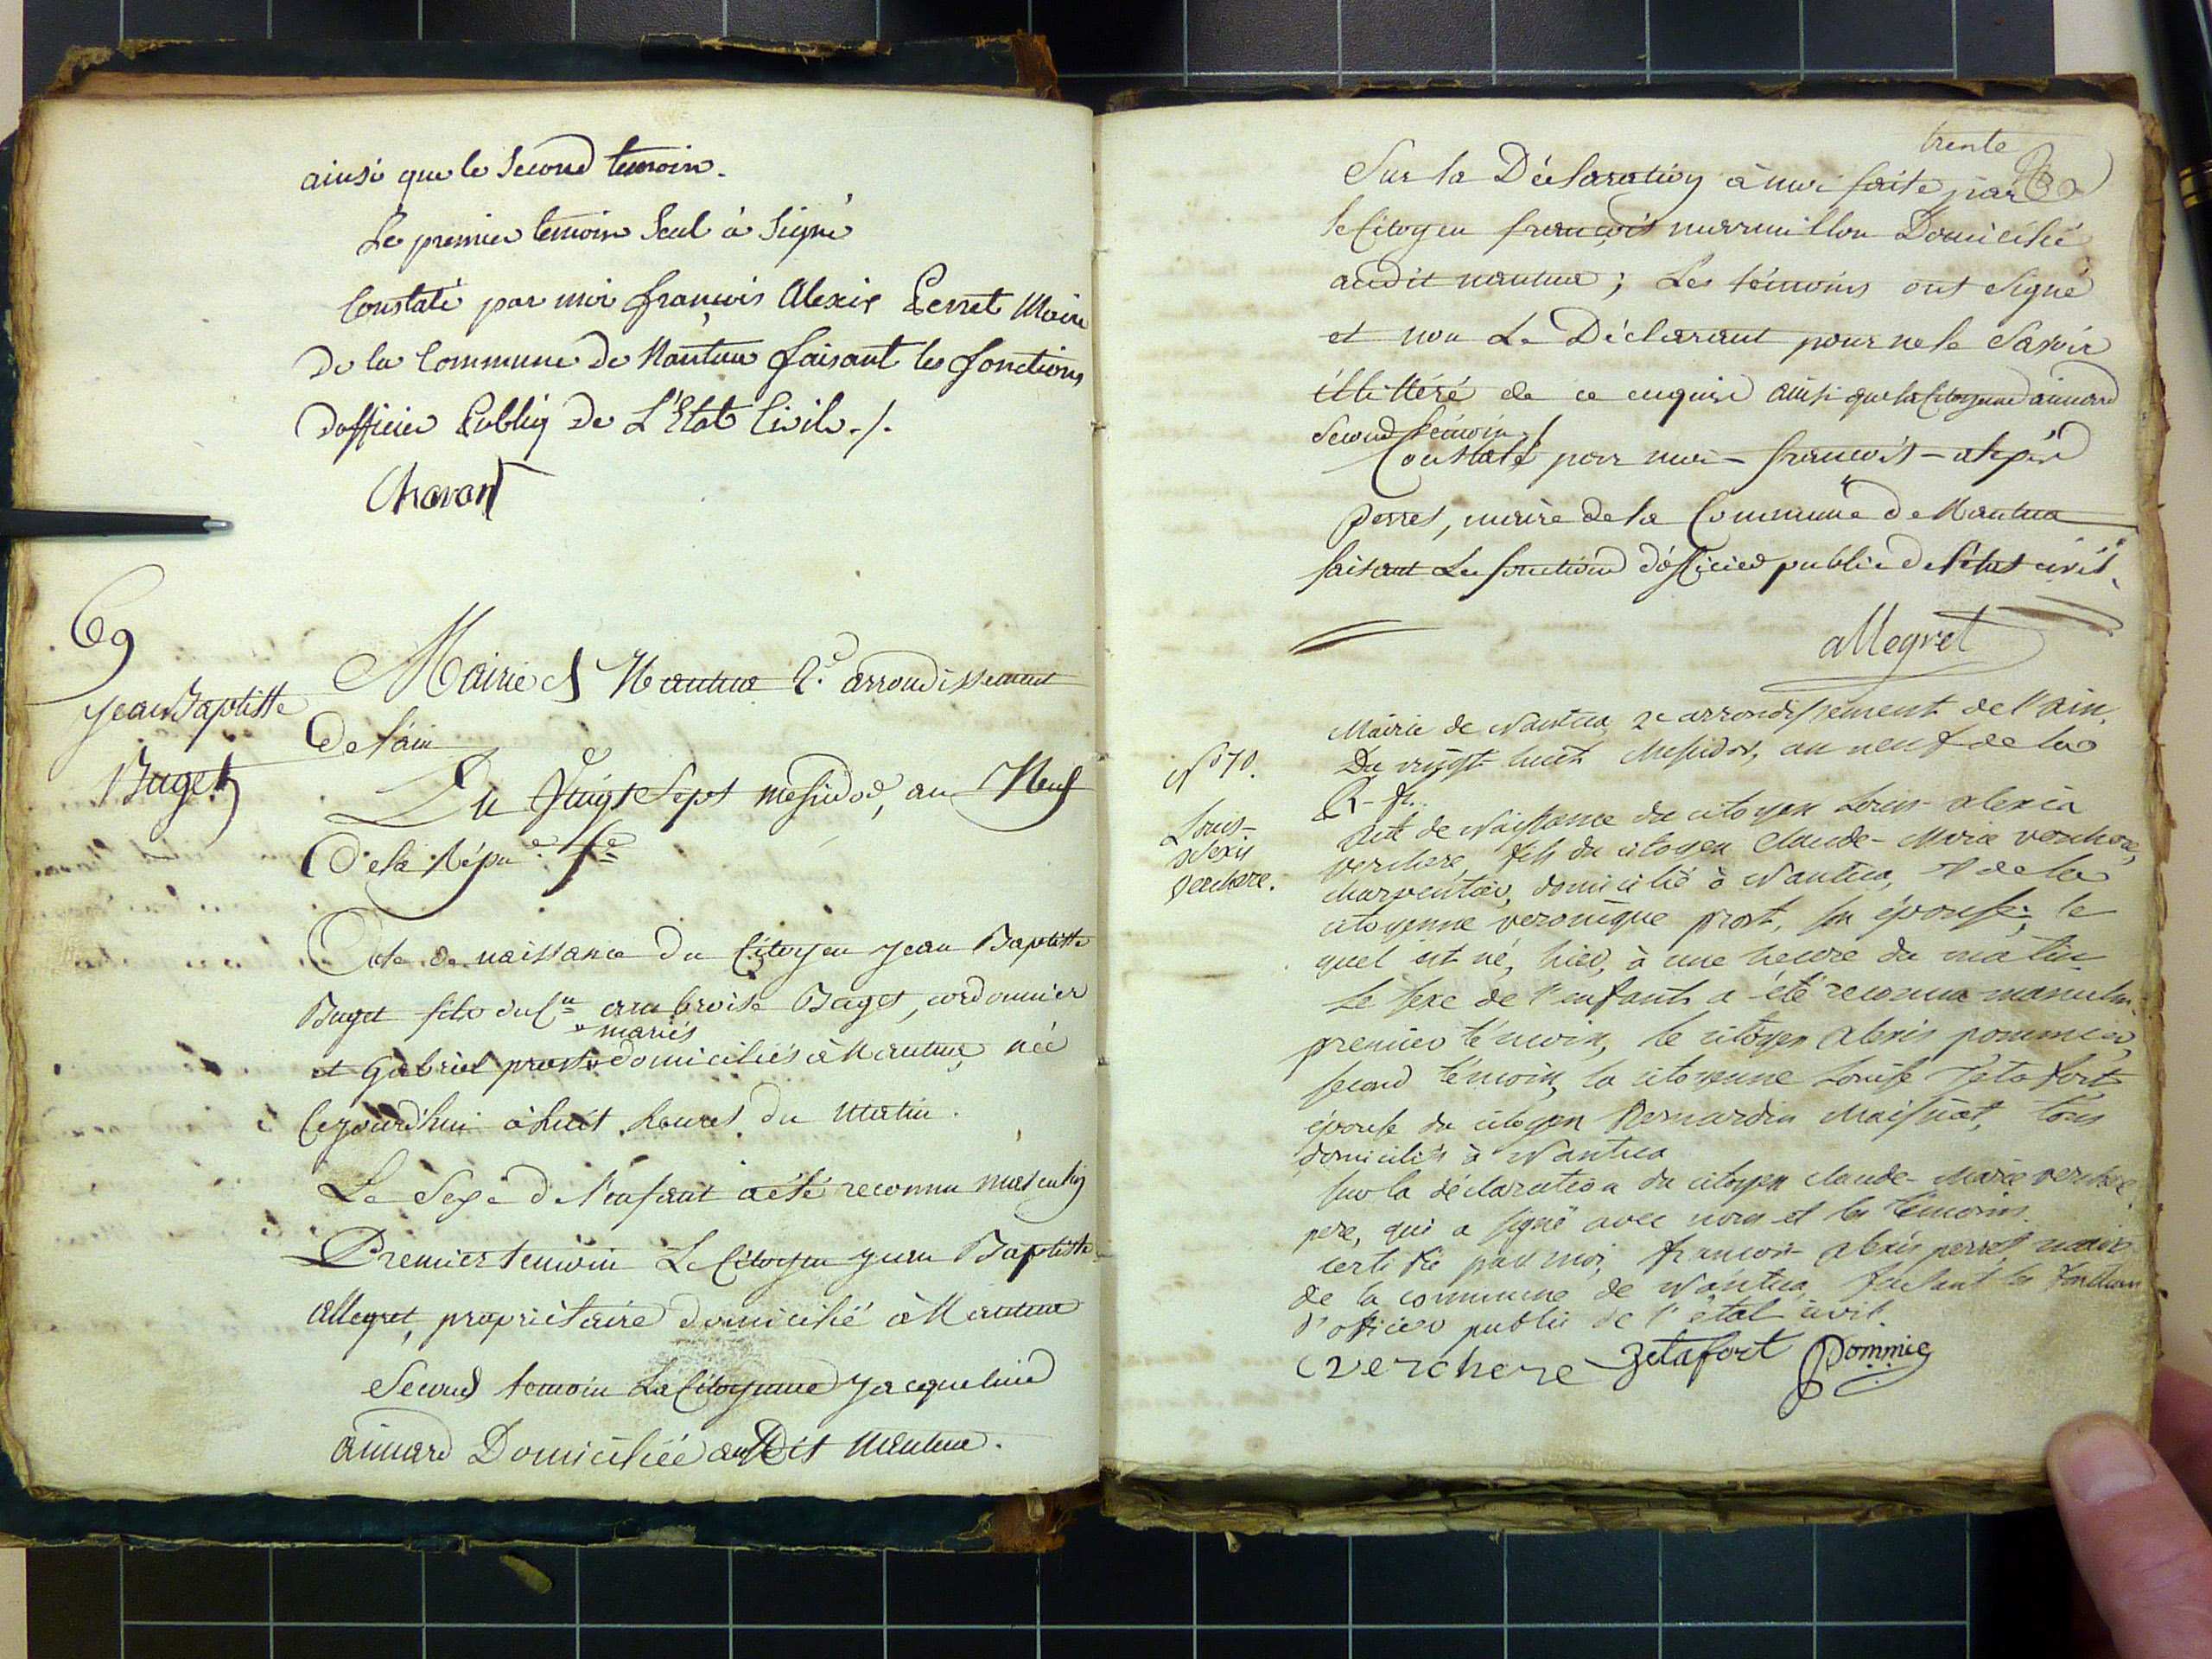 ainsi que le second temoin.
Le premier temoin seul à signé
Constaté par moi françois Alexis Perret Maire
De la Commune de Nantua faisant les fonctions
D'officier Public De L'Etat Civil./.
Chavant
69
jean Baptiste
Buget
Mairie de Nantua 2.e arrondissement
De l'ain
Du Vingt Sept messidor, an Neuf
De la Répu.e f.e
Acte de naissance Du Citoyen jean Baptiste
Buget fils du C.n ambroise Buget, cordonnier
mariés
et Gabriel prost domiciliés à Nantua, née
Cejourd'hui à huit heures du Matin.
Le Sexe de l'enfant a été reconnu masculin
Premier temoin Le Citoyen jean Baptiste
allegret, propriétaire domicilié à Nantua
Second temoin La Citoyenne jacqueline
aimard Domiciliée audit Nantua.
trente
Sur la Déclaration à moi faite par
le Citoyen françois Domicilié
audit nantua; Les témoins ont signé
et non Le Déclarant pour ne le Savoir
illittéré de ce enquis ainsi que la Citoyenne aimard
Second témoin./
Constaté par moi - françois - alexis
perret, maire de la Commune de Nantua
faisant les fonctions d'officier public de l'état civil.
allegret
Mairie de Nantua, 2e arrondissement de l'ain.
N° 70.
Du vingt huit Messidor, an neuf de la
R. fr.
Louis-
alexis
verchere.
Acte de Naissance du citoyen Louis-alexis
verchere, fils du citoyen claude-Marie verchere,
charpentier, domicilié à Nantua, & de la
citoyenne veronique prost, son épouse; le
quel est né, hier, à une heure du matin.
Le sexe de l'enfant a été reconnu masculin.
premier témoin, le citoyen alexis pommier,
second témoin, la citoyenne Louise Zetafort
épouse du citoyen Bernardin Maissiat, tous
domiciliés à Nantua
sur la déclaration du citoyen claude-Marie verchere
pere, qui a signé avec nous et les témoins.
certifié par moi, françois-alexis perret, maire
de la commune de Nantua, faisant les fonctions
d'officier public de l'état civil.
verchere Zetafort Pommier